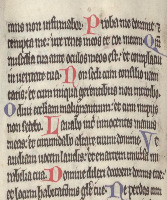 rans non infirmabor. Proba me domine et
tempta me: ure renes meos et cor meum. Qm̄
misericordia tua ante oculos meos est: et complacui
in veritate tua. Non sedi cum consilio vani
tatis: et cum iniqua gerentibus non introibo.
Odivi ecclesiam malignantium: et cum impiis
non sedebo. Lavabo int̄ innocentes manus
meas: et circumdabo altare tuum domine. Vt
audiam vocem laudis: et enarrem universa mi
rabilia tua. Domine dilexi decorem domus tue:
et locum habitationis glīe tue. Ne perdas cum